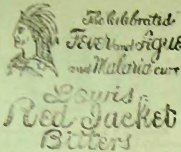 The Celebrated
Fever and Ague
and Malaria cure
Lewis'
Red Jacket
Bitters